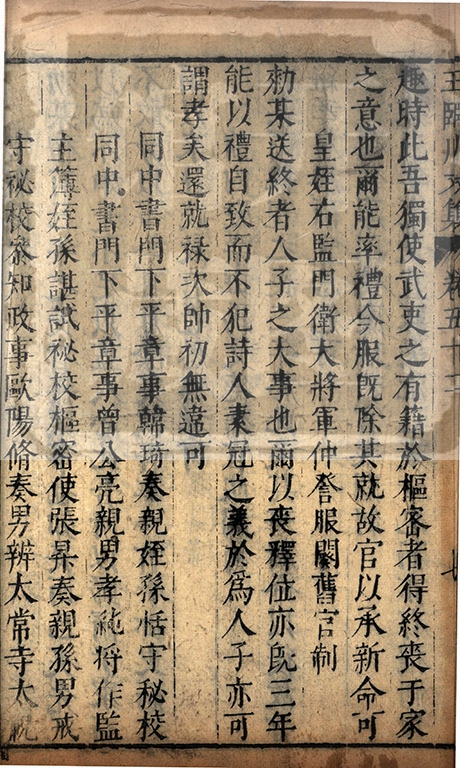 王臨川文集 卷五十
趣時此吾獨使武吏之有籍於樞密者得終喪于家
之意也爾能率禮今服既除其就故官以承新命可
皇姪右監門衛大將軍仲詧服闋舊官制
勑某送終者人子之大事也爾以喪釋位亦既三年
能以禮自致而不犯詩人素冠之義於爲人子亦可
謂孝矣還就禄次帥初無違可
同中書門下平章事韓琦奏親姪孫恬守秘校
同中書門下平章事曾公亮親男孝純将作監
主簿姪孫諶試祕校樞密使張昇奏親孫男戒
守祕校叅知政事歐陽脩奏男辨太常寺太祝